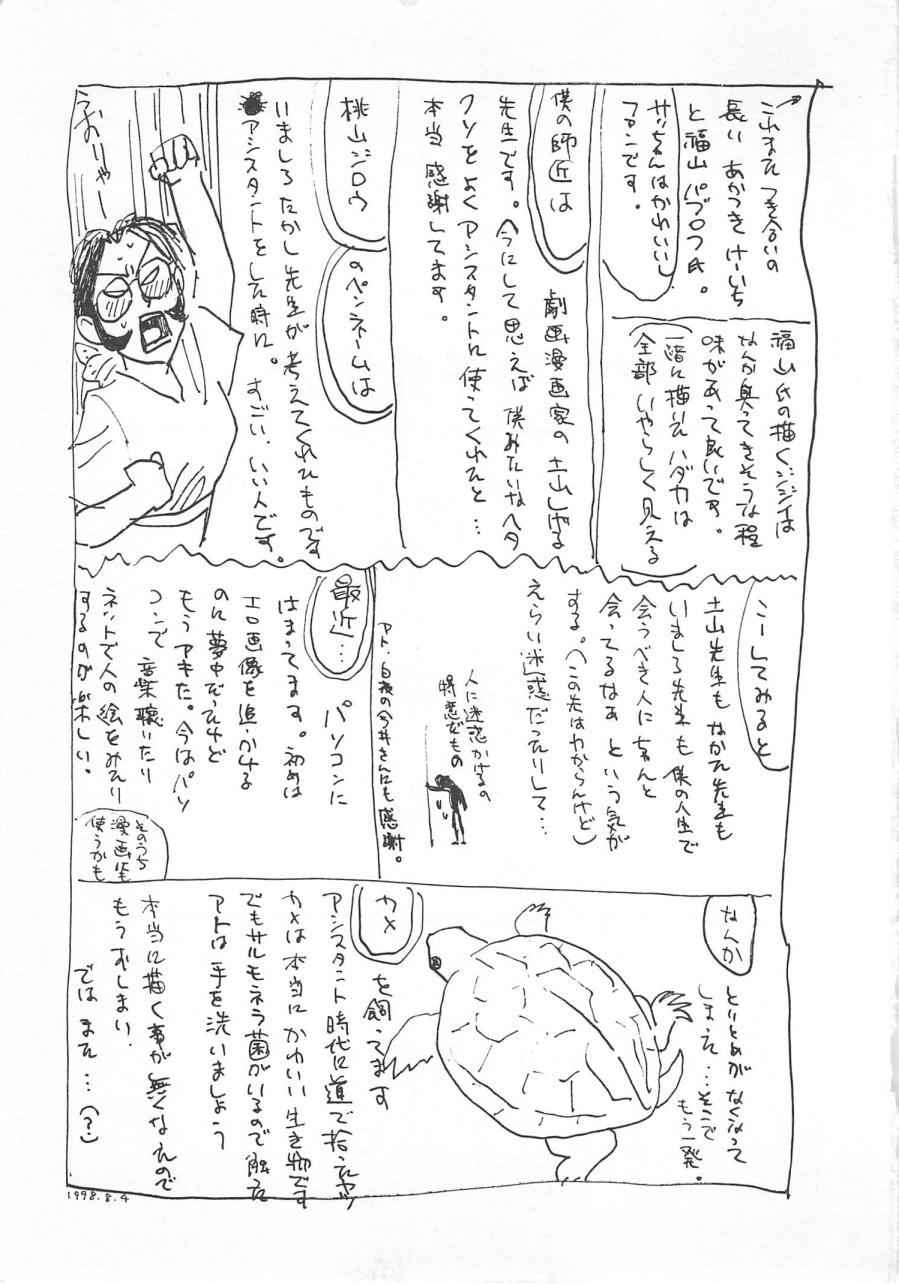 これまたつき合いの
長い あかつきけーいち
と福山パブロフ氏。
サッちんはかわいい
フンです。
福山氏の描くジジイは
なんか臭ってきそうな程
味があって良いです。
一緒に描いたハダカは
全部いやらしく見える
僕の師匠は
劇画漫画家の土山しげる
先生です。今にして思えば僕みたいなヘタ
クソをよくアシスタントに使ってくれたと…
本当感謝してます。
桃山ジロウ
のペンネームは
いましろたかし先生が考えてくれたものです
アシスタントをした時に。すごい、いい人です。
うおりゃー
こーしてみると
土山先生もなかた先生も
いましろ先生も僕の人生で
会うべき人にちゃんと
会ってるなぁという気が
する。(この先はわからんけど)
えらい迷惑だったりして…
人に迷惑かけるの
得意だもの
アト、白夜の今井さんにも感謝。
最近…
パソコンに
はまってます。初めは
エロ画像を追いかける
のに夢中だったけど
もうアキた。今はパソ
コンで音楽聴いたり
ネットで人の絵をみたり
するのが楽しい。
そのうち
漫画にも
使うかも
なんか
とりとめがなくなって
しまった…そこで
もう一発。
カメ
を飼ってます
アシスタント時代に道で拾ったヤツ
カメは本当にかわいい生き物です
でもサルモネラ菌がいるので触った
アトは手を洗いましょう
本当に描く事が無くなったので
もうおしまい.
ではまた…(?)
1998.8.4